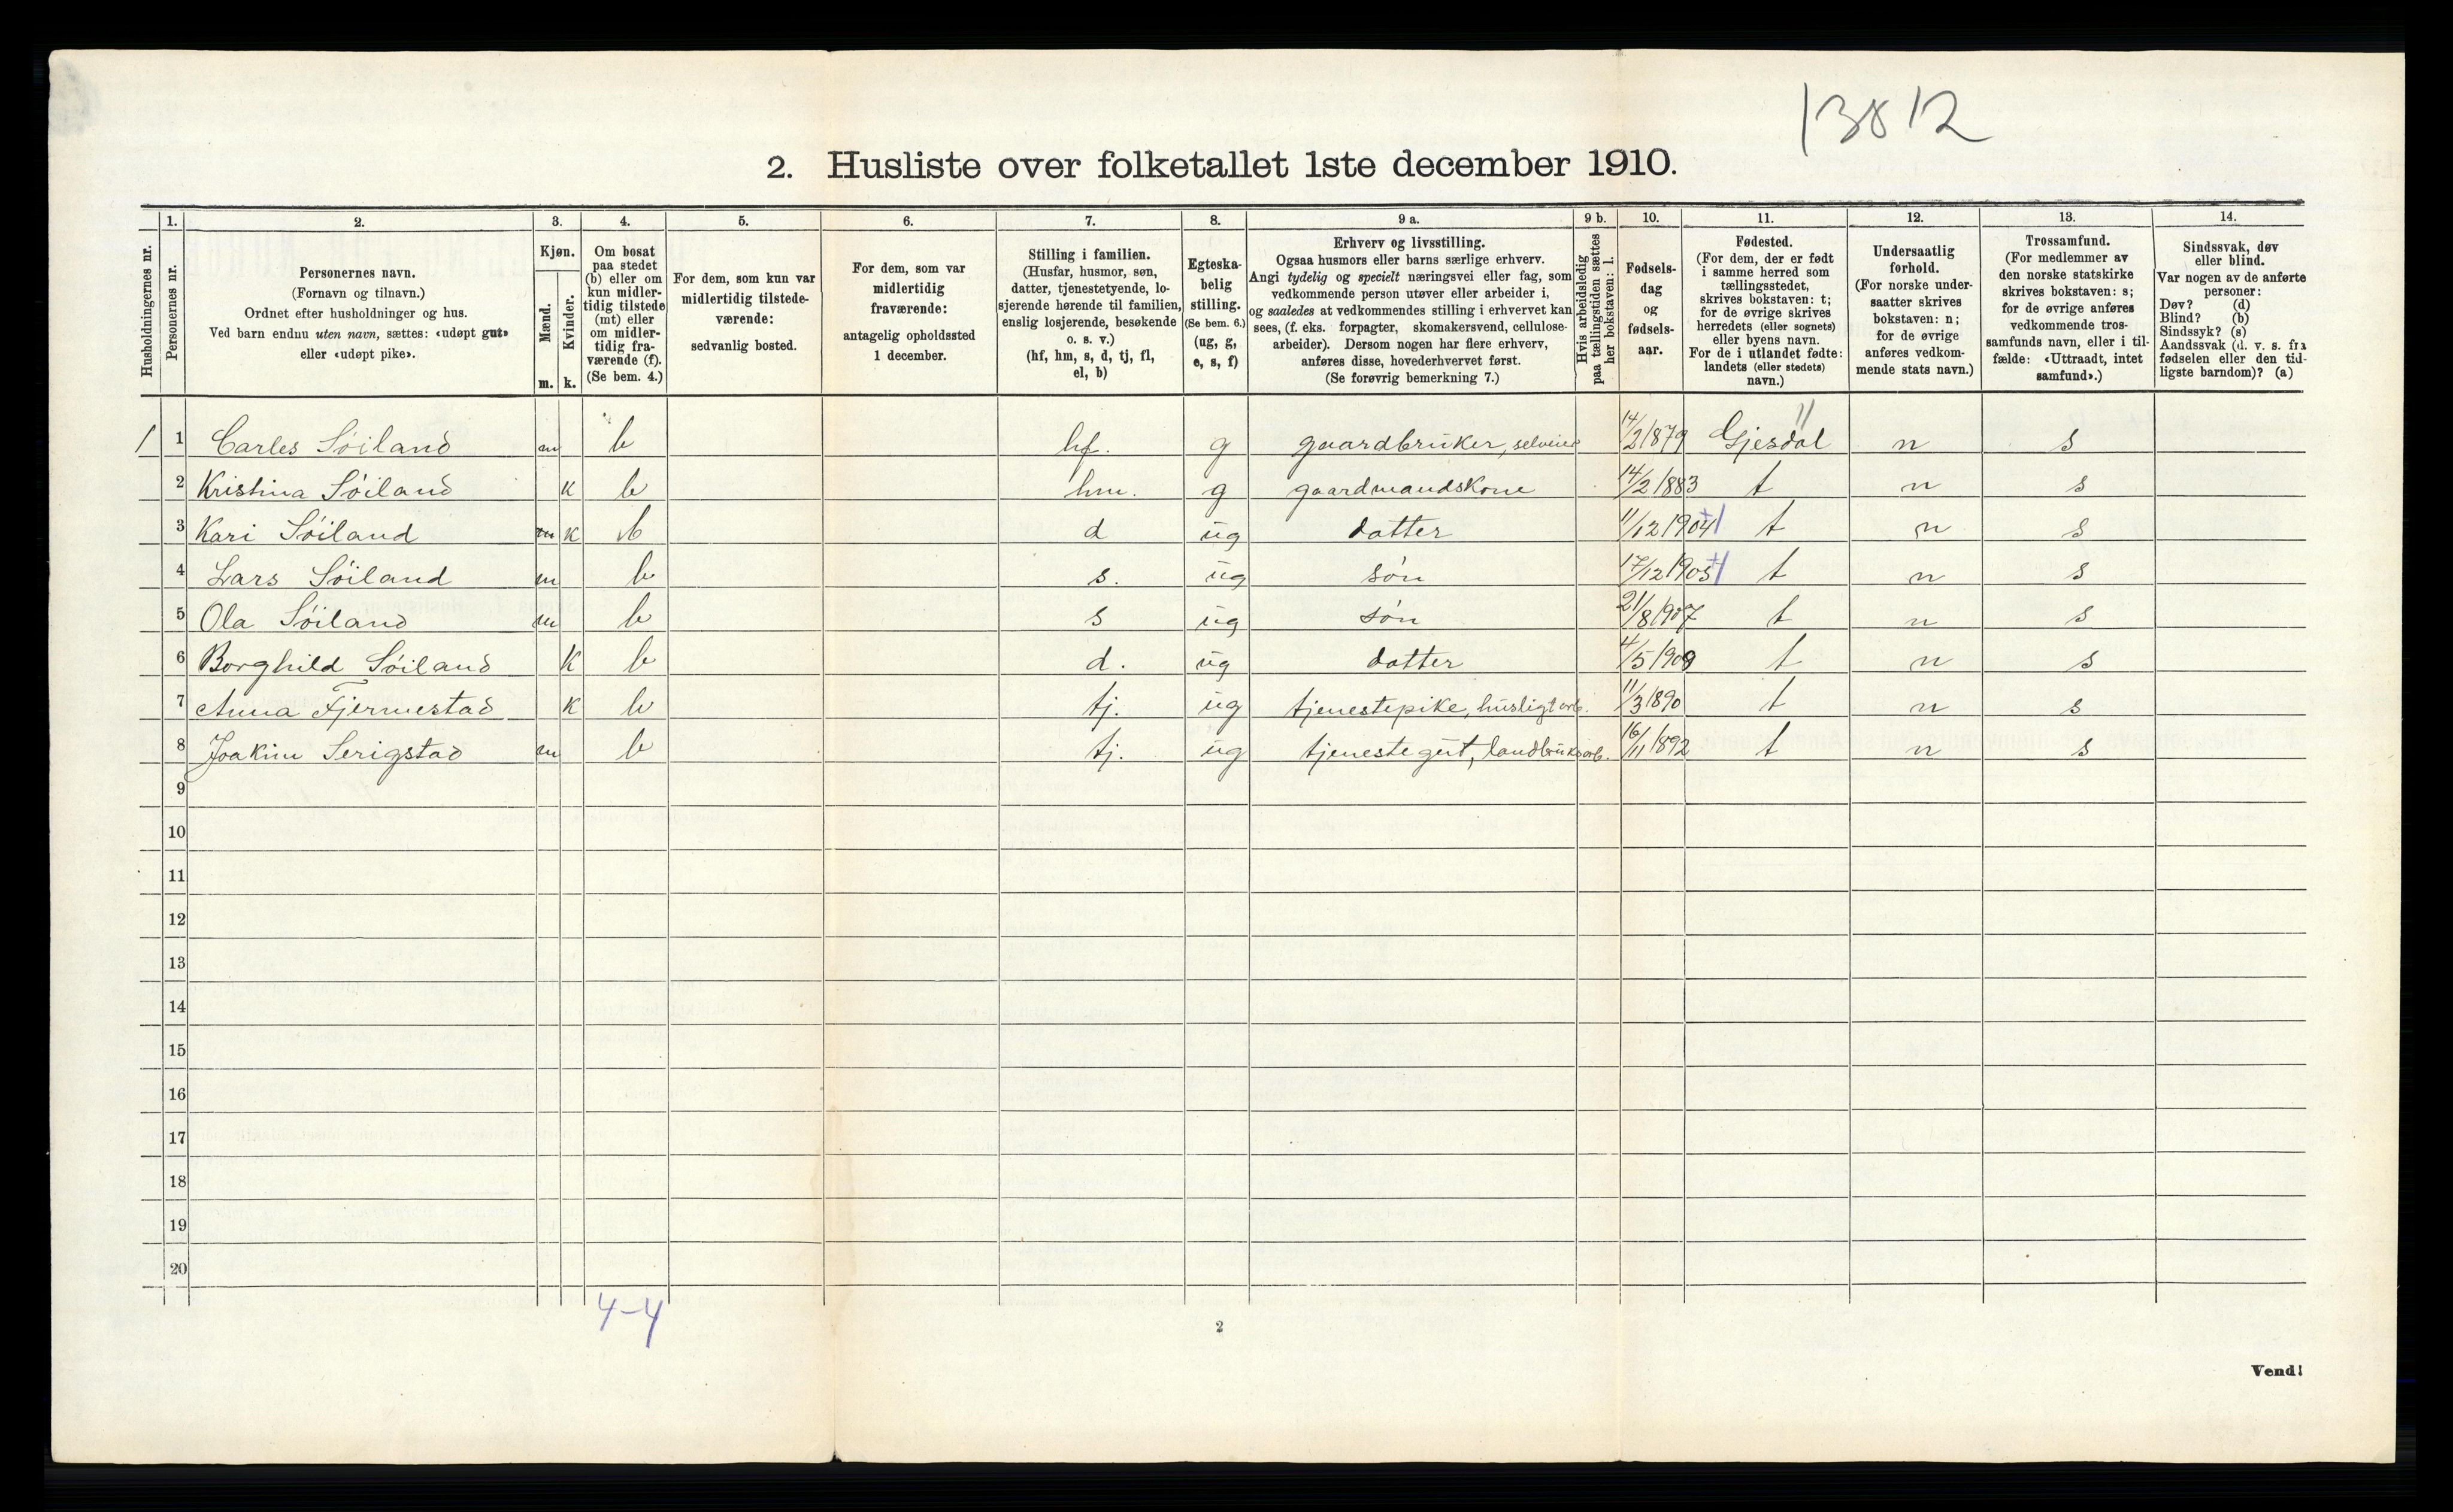 13812
2. Husliste over folketallet 1ste december 1910.
Husholdningernes nr.
1. Personernes nr.
2. Personernes navn.
(Fornavn og tilnavn.)
Ordnet efter husholdninger og hus.
Ved barn endnu uten navn, sættes: «udøpt gut»
eller «udøpt pike».
3. Kjøn.
Mænd. m.
Kvinder. k.
4. Om bosat
paa stedet
(b) eller om
kun midler-
tidig tilstede
(mt) eller
om midler-
tidig fra-
værende (f).
(Se bem. 4.)
5. For dem, som kun var
midlertidig tilstede-
værende:
sedvanlig bosted.
6. For dem, som var
midlertidig
fraværende:
antagelig opholdssted
1 december.
7. Stilling i familien.
(Husfar, husmor, søn,
datter, tjenestetyende, lo-
sjerende hørende til familien,
enslig losjerende, besøkende
o. s. v.)
(hf, hm, s, d, tj, fl,
el, b)
8. Egteska-
belig
stilling.
(Se bem. 6.)
(ug, g,
e, s, f)
9 a. Erhverv og livsstilling.
Ogsaa husmors eller barns særlige erhverv.
Angi tydelig og specielt næringsvei eller fag, som
vedkommende person utøver eller arbeider i,
og saaledes at vedkommendes stilling i erhvervet kan
sees, (f. eks. forpagter, skomakersvend, cellulose-
arbeider). Dersom nogen har flere erhverv,
anføres disse, hovederhvervet først.
(Se forøvrig bemerkning 7.)
9 b. Hvis arbeidsledig
paa tællingstiden sættes
her bokstaven: l.
10. Fødsels-
dag
og
fødsels-
aar.
11. Fødested.
(For dem, der er født
i samme herred som
tællingsstedet,
skrives bokstaven: t;
for de øvrige skrives
herredets (eller sognets)
eller byens navn.
For de i utlandet fødte:
landets (eller stedets)
navn.)
12. Undersaatlig
forhold.
(For norske under-
saatter skrives
bokstaven: n;
for de øvrige
anføres vedkom-
mende stats navn.)
13. Trossamfund.
(For medlemmer av
den norske statskirke
skrives bokstaven: s;
for de øvrige anføres
vedkommende tros-
samfunds navn, eller i til-
fælde: «Uttraadt, intet
samfund».)
14. Sindssvak, døv
eller blind.
Var nogen av de anførte
personer:
Døv? (d)
Blind? (b)
Sindssyk? (s)
Aandssvak (d. v. s. fra
fødselen eller den tid-
ligste barndom)? (a)
1 1 Carles Søiland m b hf. g gaardbruker, selveier 14/2 1879 Gjesdal n s
2 Kristina Søiland k b hm. g gaardmandskone 14/2 1883 t n s
3 Kari Søiland m k b d ug datter 11/12 1904 t n s
4 Lars Søiland m b s. ug søn 17/12 1905 t n s
5 Ola Søiland m b s ug søn 21/8 1907 t n s
6 Borghild Søiland k b d. ug datter 4/5 1909 t n s
7 Anna Fjermestad k b tj. ug tjenestepike, husligt arb. 11/3 1890 t n s
8 Joakim Serigstad m b tj. ug tjenestegut, landbruksarb. 16/11 1892 t n s
9
10
11
12
13
14
15
16
17
18
19
20
4-4
2
Vend!